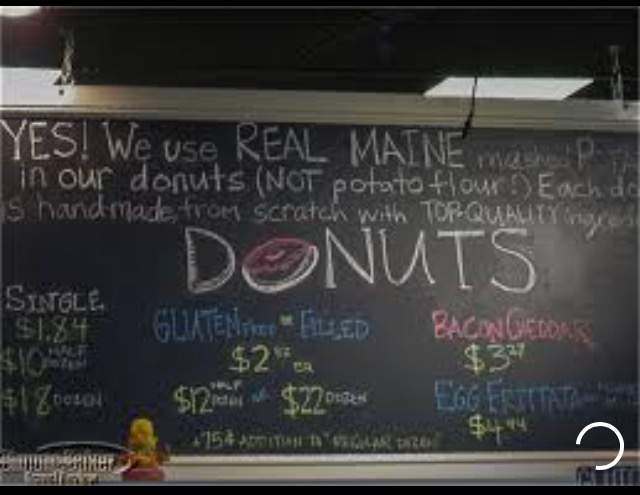 YES! We use REAL MAINE mashed
in our donuts (NOT potato flour!) Each
is handmade, from scratch with TOP-QUALITY
DONUTS
SINGLE
$1.84
$10 HALF DOZEN
$18 DOZEN
GLUTEN FREE or FILLED
$2 EA
$12 HALF DOZEN or $22 DOZEN
+75¢ ADDITION TO REGULAR DOZEN
BACON CHEDDAR
$3
EGG FRITTATA
$4.44